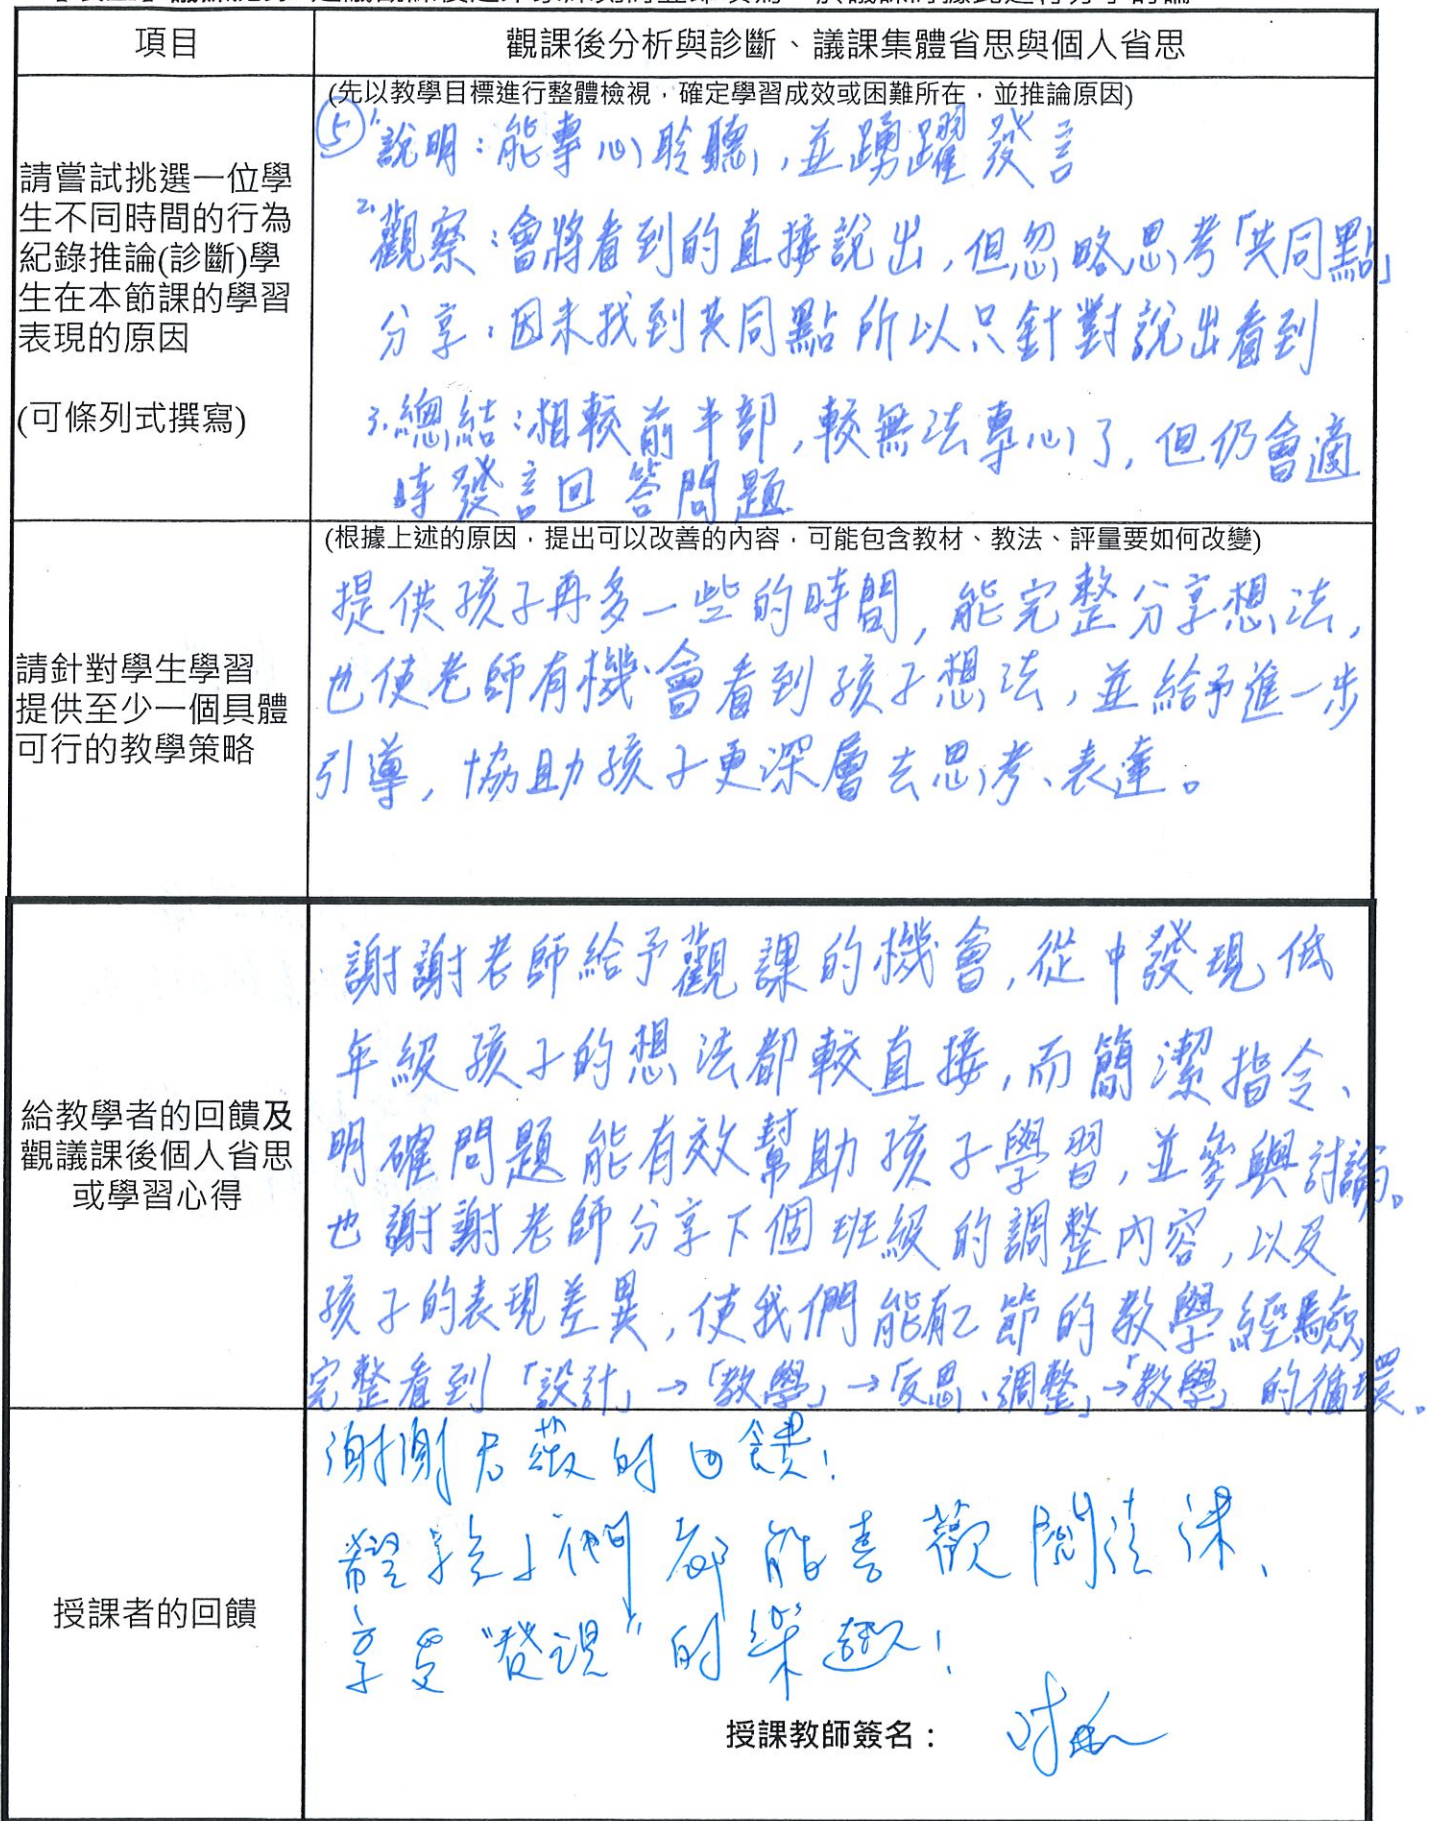 項目
觀課後分析與診斷、議課集體省思與個人省思
請嘗試挑選一位學
生不同時間的行為
紀錄推論(診斷)學
生在本節課的學習
表現的原因
(可條列式撰寫)
(先以教學目標進行整體檢視,確定學習成效或困難所在,並推論原因)
⑤ 1.說明:能專心聆聽,並踴躍發言
2.觀察:會將看到的直接說出,但忽略思考「共同點」
分享:因未找到共同點所以只針對說出看到
3.總結:相較前半部,較無法專心了,但仍會適
時發言回答問題
請針對學生學習
提供至少一個具體
可行的教學策略
(根據上述的原因,提出可以改善的內容,可能包含教材、教法、評量要如何改變)
提供孩子再多一些的時間,能完整分享想法,
也使老師有機會看到孩子想法,並給予進一步
引導,協助孩子更深層去思考、表達。
給教學者的回饋及
觀議課後個人省思
或學習心得
謝謝老師給予觀課的機會,從中發現低
年級孩子的想法都較直接,而簡潔指令、
明確問題能有效幫助孩子學習,並參與討論。
也謝謝老師分享下個班級的調整內容,以及
孩子的表現差異,使我們能有2節的教學經驗
完整看到「設計」→「教學」→「反思、調整」→「教學」的循環。
授課者的回饋
謝謝 薇的回饋!
希望孩子們都能喜歡閱讀課、
享受"發現"的樂趣!
授課教師簽名: